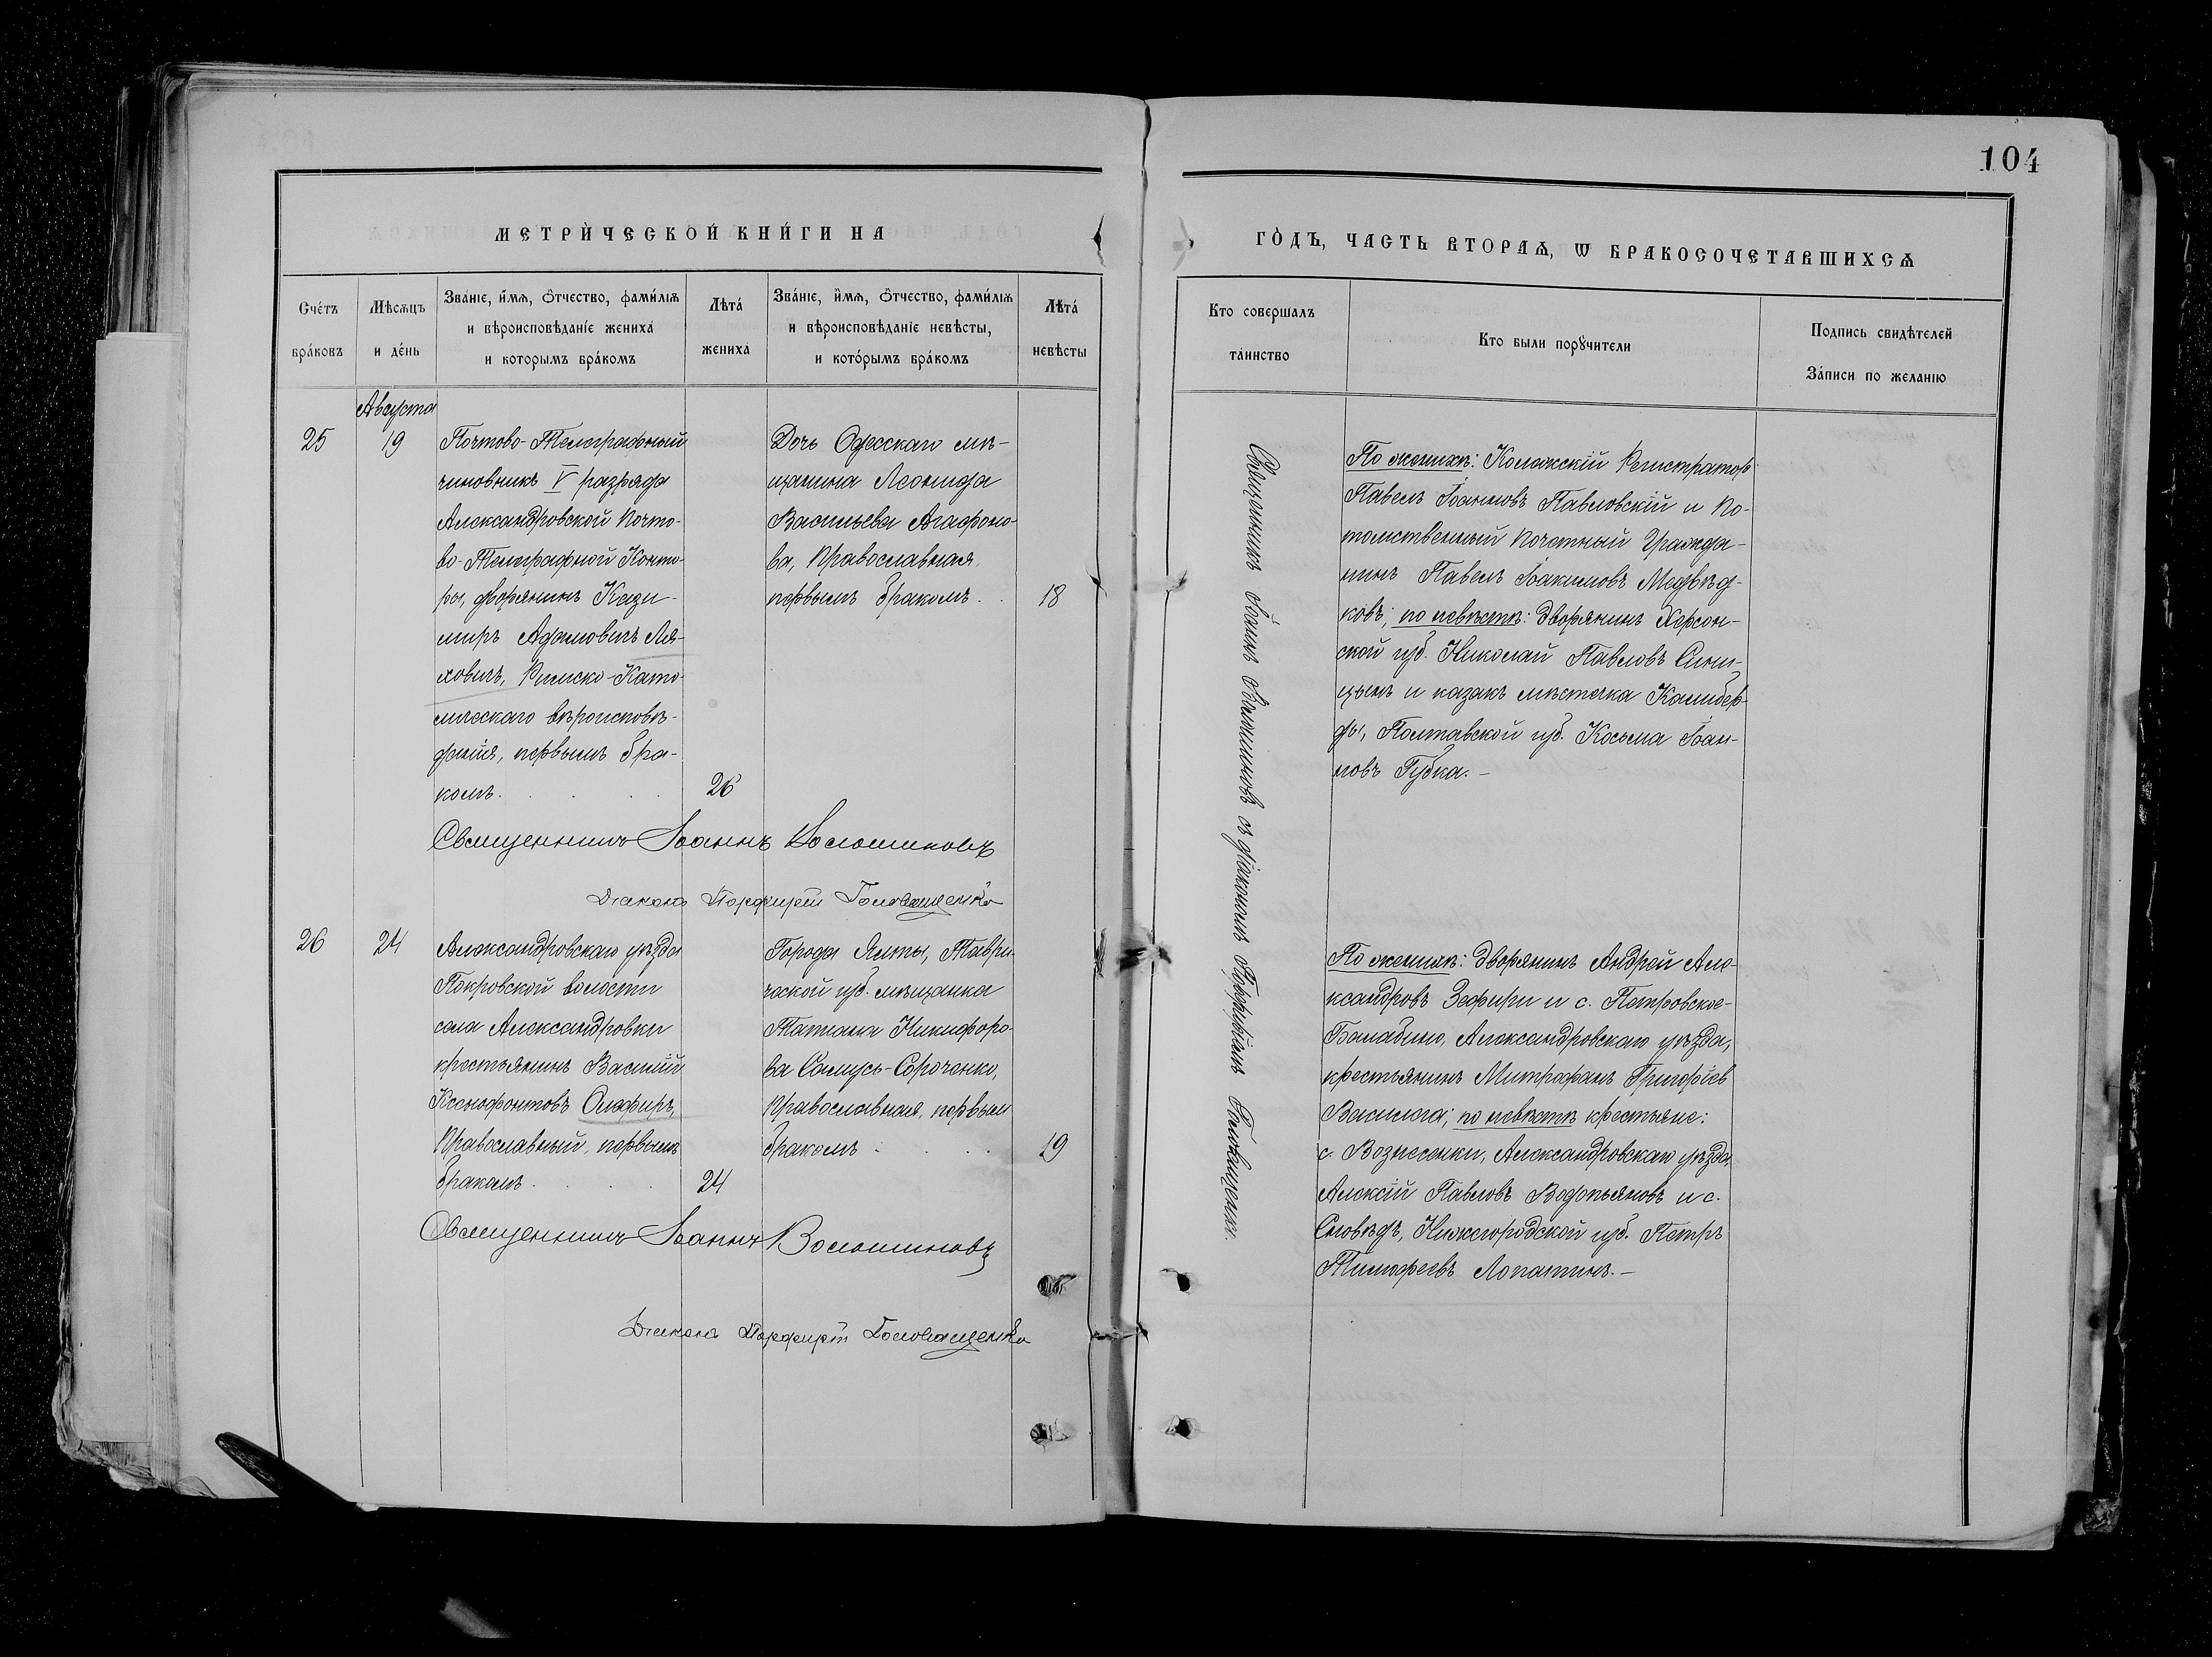 104
МЕТРИ́ЧЕСКОЙ КНИ́ГИ НА
ГО́ДЪ, ЧАСТЬ ВТОРАѦ, Ѡ БРАКОСОЧЕТАВШИХСѦ
Сче́тъ
бра́ковъ
Мѣ́сѧцъ
и де́нь
Зва́нїе, и҆́мѧ, о҆́тчество, фами́лїѧ
и вѣроисповѣ́данїе жениха̀
и которымъ бра́комъ
Лѣта́
жениха̀
Зва́нїе, и҆́мѧ, о҆́тчество, фами́лїѧ
и вѣроисповѣ́данїе невѣ́сты,
и кото́рымъ бра́комъ
Лѣта́
невѣ́сты
Кто совершалъ
та́инство
Кто были порꙋчители
Подпись свидѣтелей
За́писи по желанію
Августа
25
19
Почтово-Телеграфный
чиновникъ V разряда
Александровской Почто-
во-Телеграфной Конто-
ры, дворянинъ Кази-
миръ Адамовичъ Ля-
ховичъ, Римско-Като-
лическаго вѣроисповѣ-
данія, первымъ бра-
комъ. . . .
26
Дочь Одесскаго мѣ-
щанина Леонида
Васильева Агафоно-
ва, Православная,
первымъ бракомъ. .
18
Священникъ Іоаннъ Волошиновъ
Діаконъ Порфирій Головащенко
Священникъ Іоаннъ Волошиновъ съ діакономъ Порфиріемъ Головащенко.
По женихѣ: Коллежскій Регистраторъ
Павелъ Іоанновъ Павловскій и по-
томственный почетный гражда-
нинъ Павелъ Іоакимовъ Медвѣд-
ковъ; по невѣстѣ: дворянинъ Херсон-
ской губ. Николай Павловъ Сини-
цынъ и казакъ мѣстечка Келиберд-
ды, Полтавской губ. Косьма Іоан-
новъ Губка.—
26
24
Александровскаго уѣзда
Покровской волости
села Александровки
крестьянинъ Василій
Ксенофонтовъ Олефиръ,
Православный, первымъ
бракомъ. . . .
24
Города Ялты, Таври-
ческой губ. мѣщанка
Татіана Никифоро-
ва Самусь-Сороченко,
Православная, первым
бракомъ . . . .
19
Священникъ Іоаннъ Волошиновъ
Діаконъ Порфирій Головащенко
По женихѣ: дворянинъ Андрей Але-
ксандровъ Зефири и с. Петровское-
Балабино, Александровскаго уѣзда,
крестьянинъ Митрофанъ Григоріев
Василега; по невѣстѣ крестьяне:
с. Вознесенки, Александровскаго уѣзда,
Алексій Павловъ Водопьяновъ и с.
Сновѣдъ, Нижегородской губ. Петръ
Тимофеевъ Лопатинъ.—